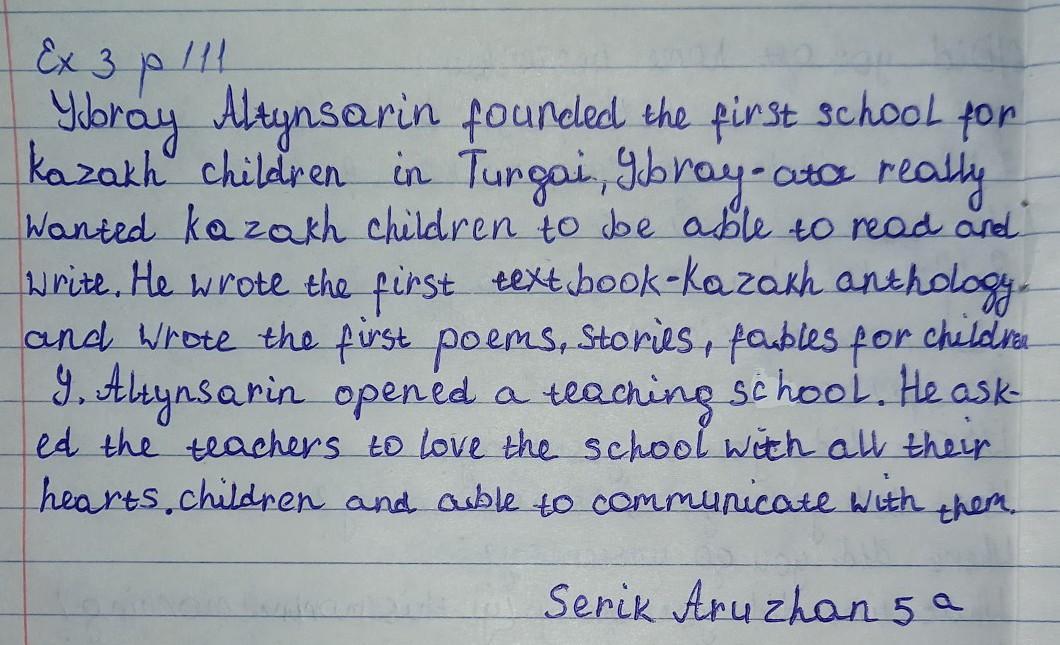 Ex 3 p 111
Ybray Altynsarin founded the first school for
kazakh children in Turgai, Ybray-ata really
wanted kazakh children to be able to read and
write. He wrote the first textbook-kazakh anthology
and wrote the first poems, stories, fables for children
Y. Altynsarin opened a teaching school. He ask-
ed the teachers to love the school with all their
hearts. children and able to communicate with them.
Serik Aruzhan 5 a